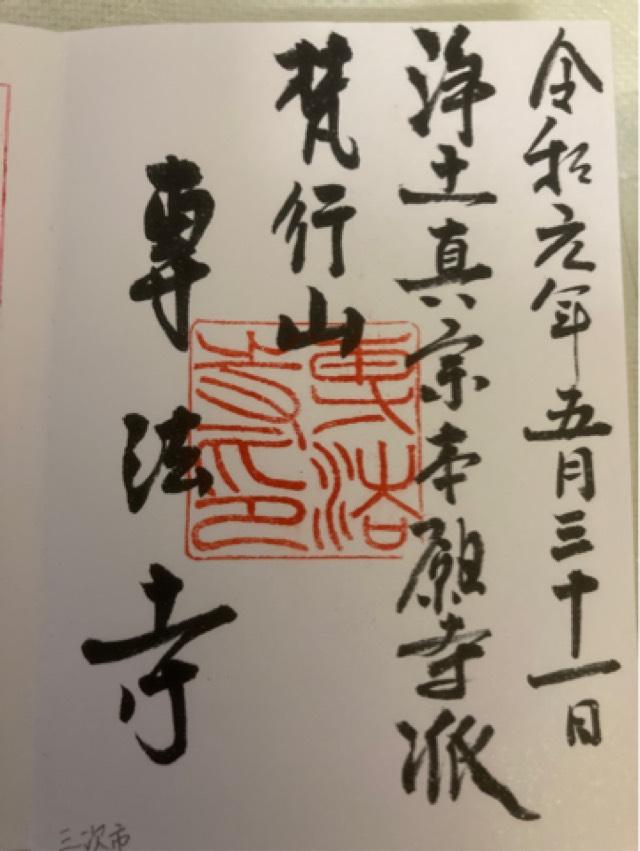 令和元年五月三十一日
浄土真宗本願寺派
梵行山
専法寺
専法寺印
三次市